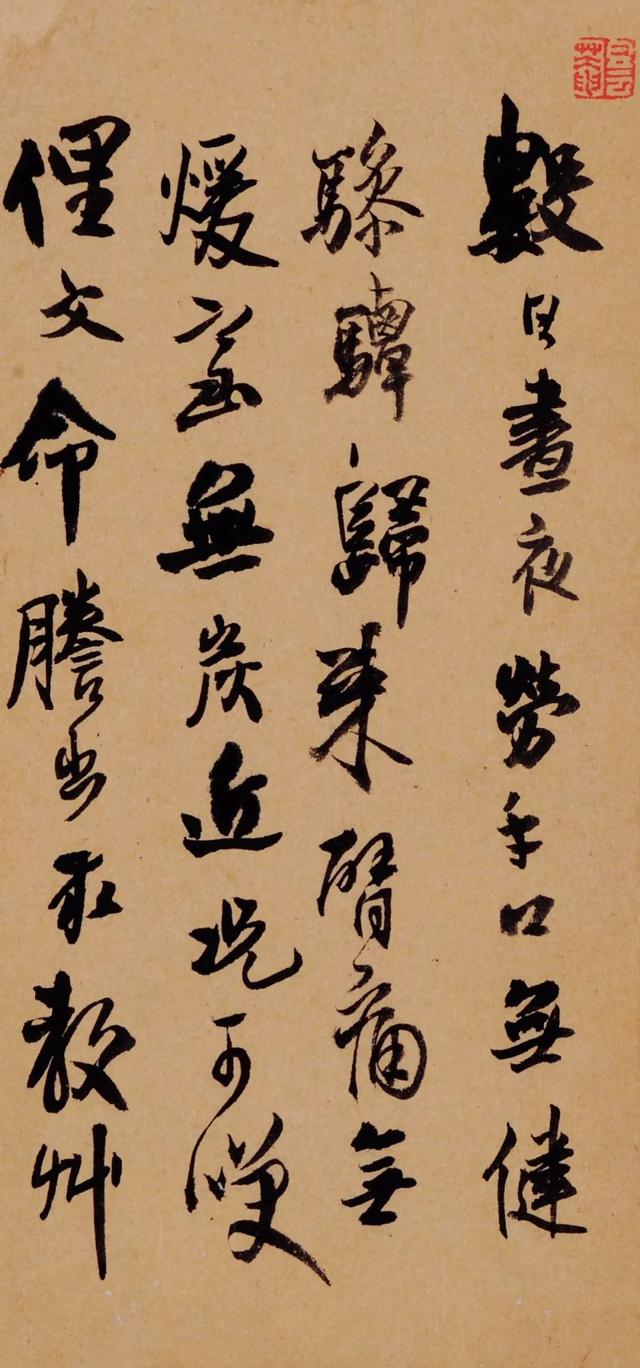 數日晝夜勞手口無健
驂驔歸來臂痛無
煖無炭近況可
俚文命謄出求教艸